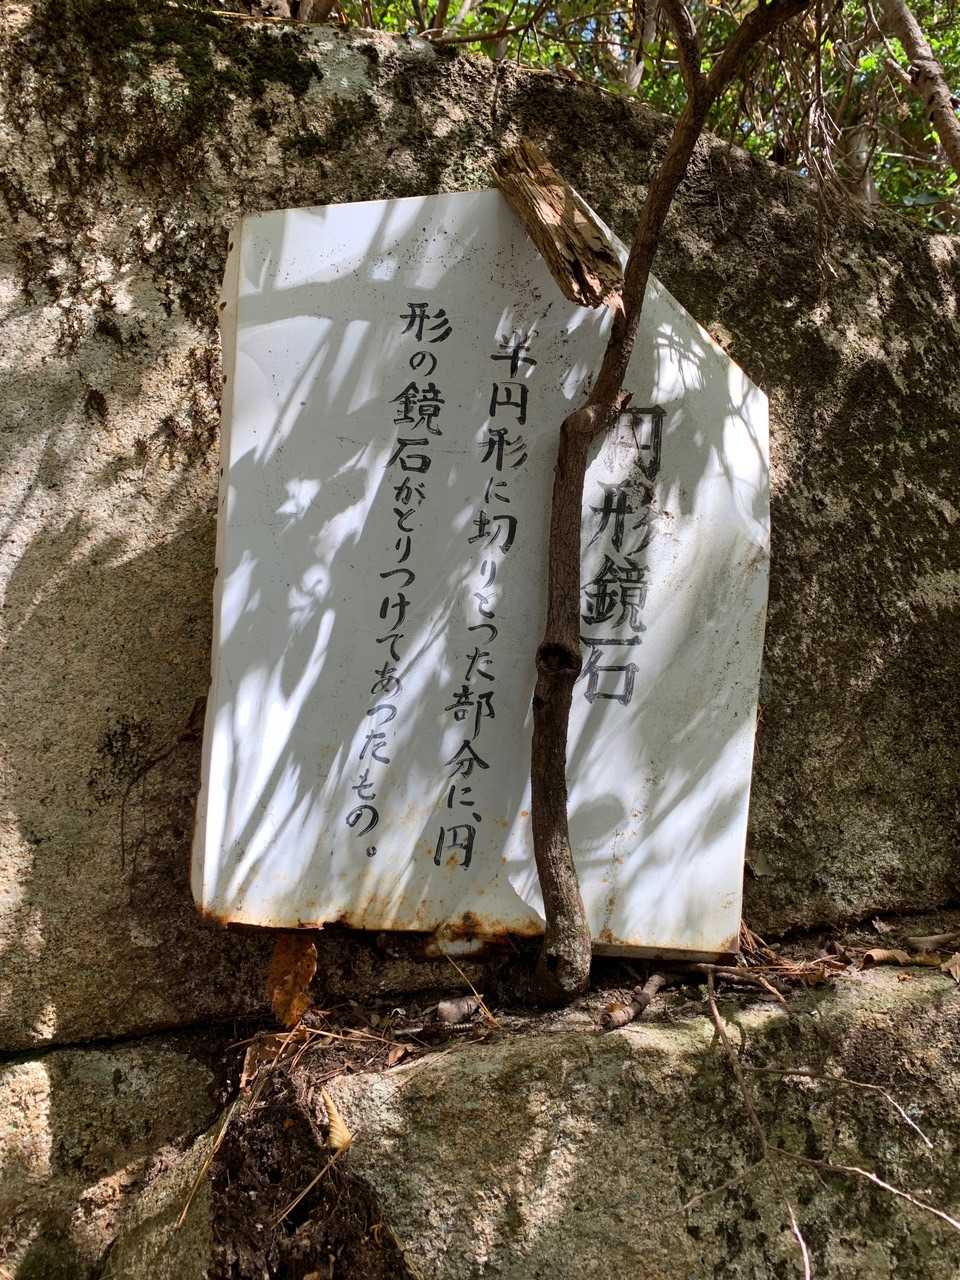 円形鏡石
半円形に切りとつた部分に、円
形の鏡石がとりつけてあつたもの。